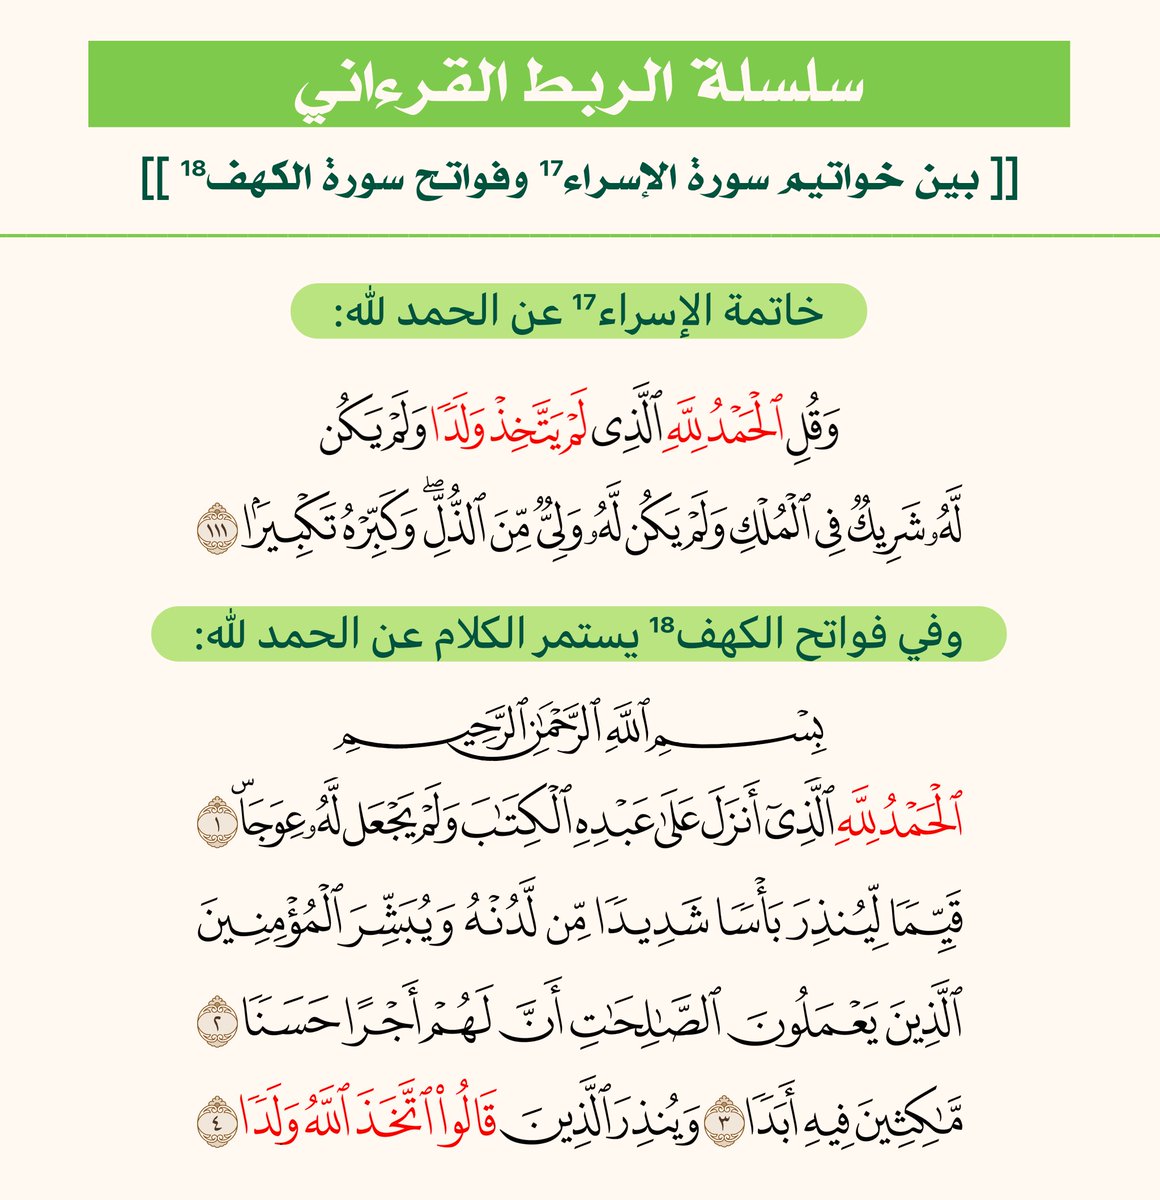 سلسلة الربط القرءاني
[[ بين خواتيم سورة الإسراء¹⁷ وفواتح سورة الكهف¹⁸ ]]
خاتمة الإسراء¹⁷ عن الحمد لله:
وَقُلِ ٱلْحَمْدُ لِلَّهِ ٱلَّذِى لَمْ يَتَّخِذْ وَلَدًا وَلَمْ يَكُن
لَّهُۥ شَرِيكٌ فِى ٱلْمُلْكِ وَلَمْ يَكُن لَّهُۥ وَلِىٌّ مِّنَ ٱلذُّلِّ ۖ وَكَبِّرْهُ تَكْبِيرًۢا ١١١
وفي فواتح الكهف¹⁸ يستمر الكلام عن الحمد لله:
بِسْمِ ٱللَّهِ ٱلرَّحْمَٰنِ ٱلرَّحِيمِ
ٱلْحَمْدُ لِلَّهِ ٱلَّذِىٓ أَنزَلَ عَلَىٰ عَبْدِهِ ٱلْكِتَٰبَ وَلَمْ يَجْعَل لَّهُۥ عِوَجَاۜ ١
قَيِّمًا لِّيُنذِرَ بَأْسًا شَدِيدًا مِّن لَّدُنْهُ وَيُبَشِّرَ ٱلْمُؤْمِنِينَ
ٱلَّذِينَ يَعْمَلُونَ ٱلصَّٰلِحَٰتِ أَنَّ لَهُمْ أَجْرًا حَسَنًا ٢
مَّٰكِثِينَ فِيهِ أَبَدًا ٣ وَيُنذِرَ ٱلَّذِينَ قَالُوا۟ ٱتَّخَذَ ٱللَّهُ وَلَدًا ٤